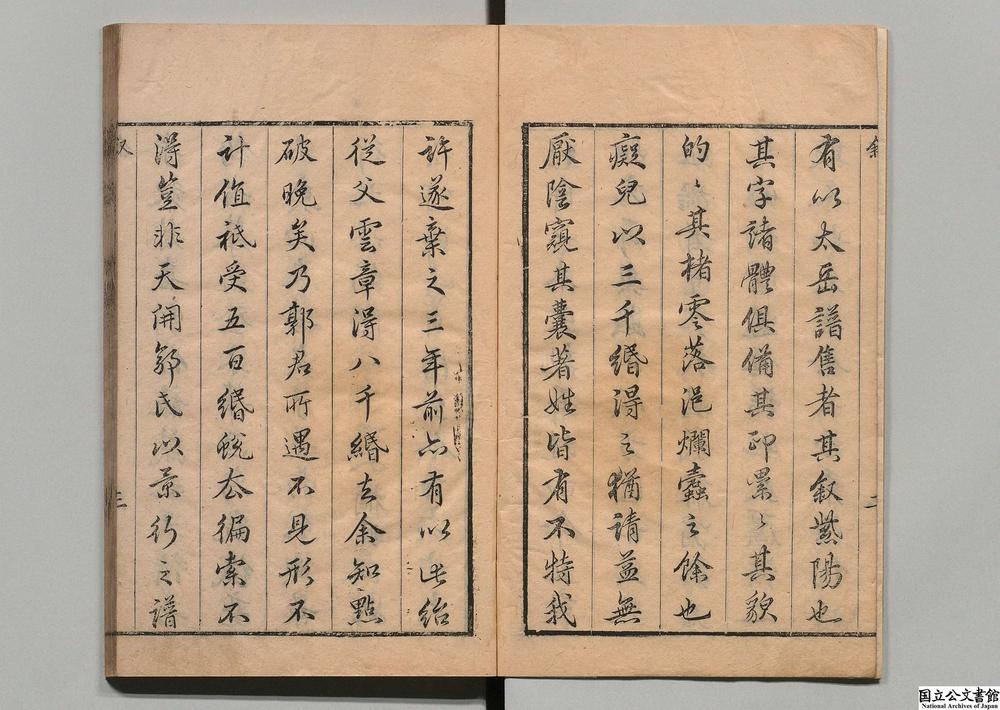 有以太岳譜售者其叙紫陽也
其字諸體俱備其印纍〻其貌
的〻其楮零落浥爛蠹之餘也
癡兒以三千緡得之猶請益無
厭陰窺其囊著姓皆有不特我
許遂棄之三年前亦有以此紿
從父雲章得八千緡去余知點
破晚矣乃郭君所遇不見形不
計值祗受五百緡蛻去徧索不
得豈非天開郭氏以景行之譜
叙
二
三
国立公文書館
National Archives of Japan